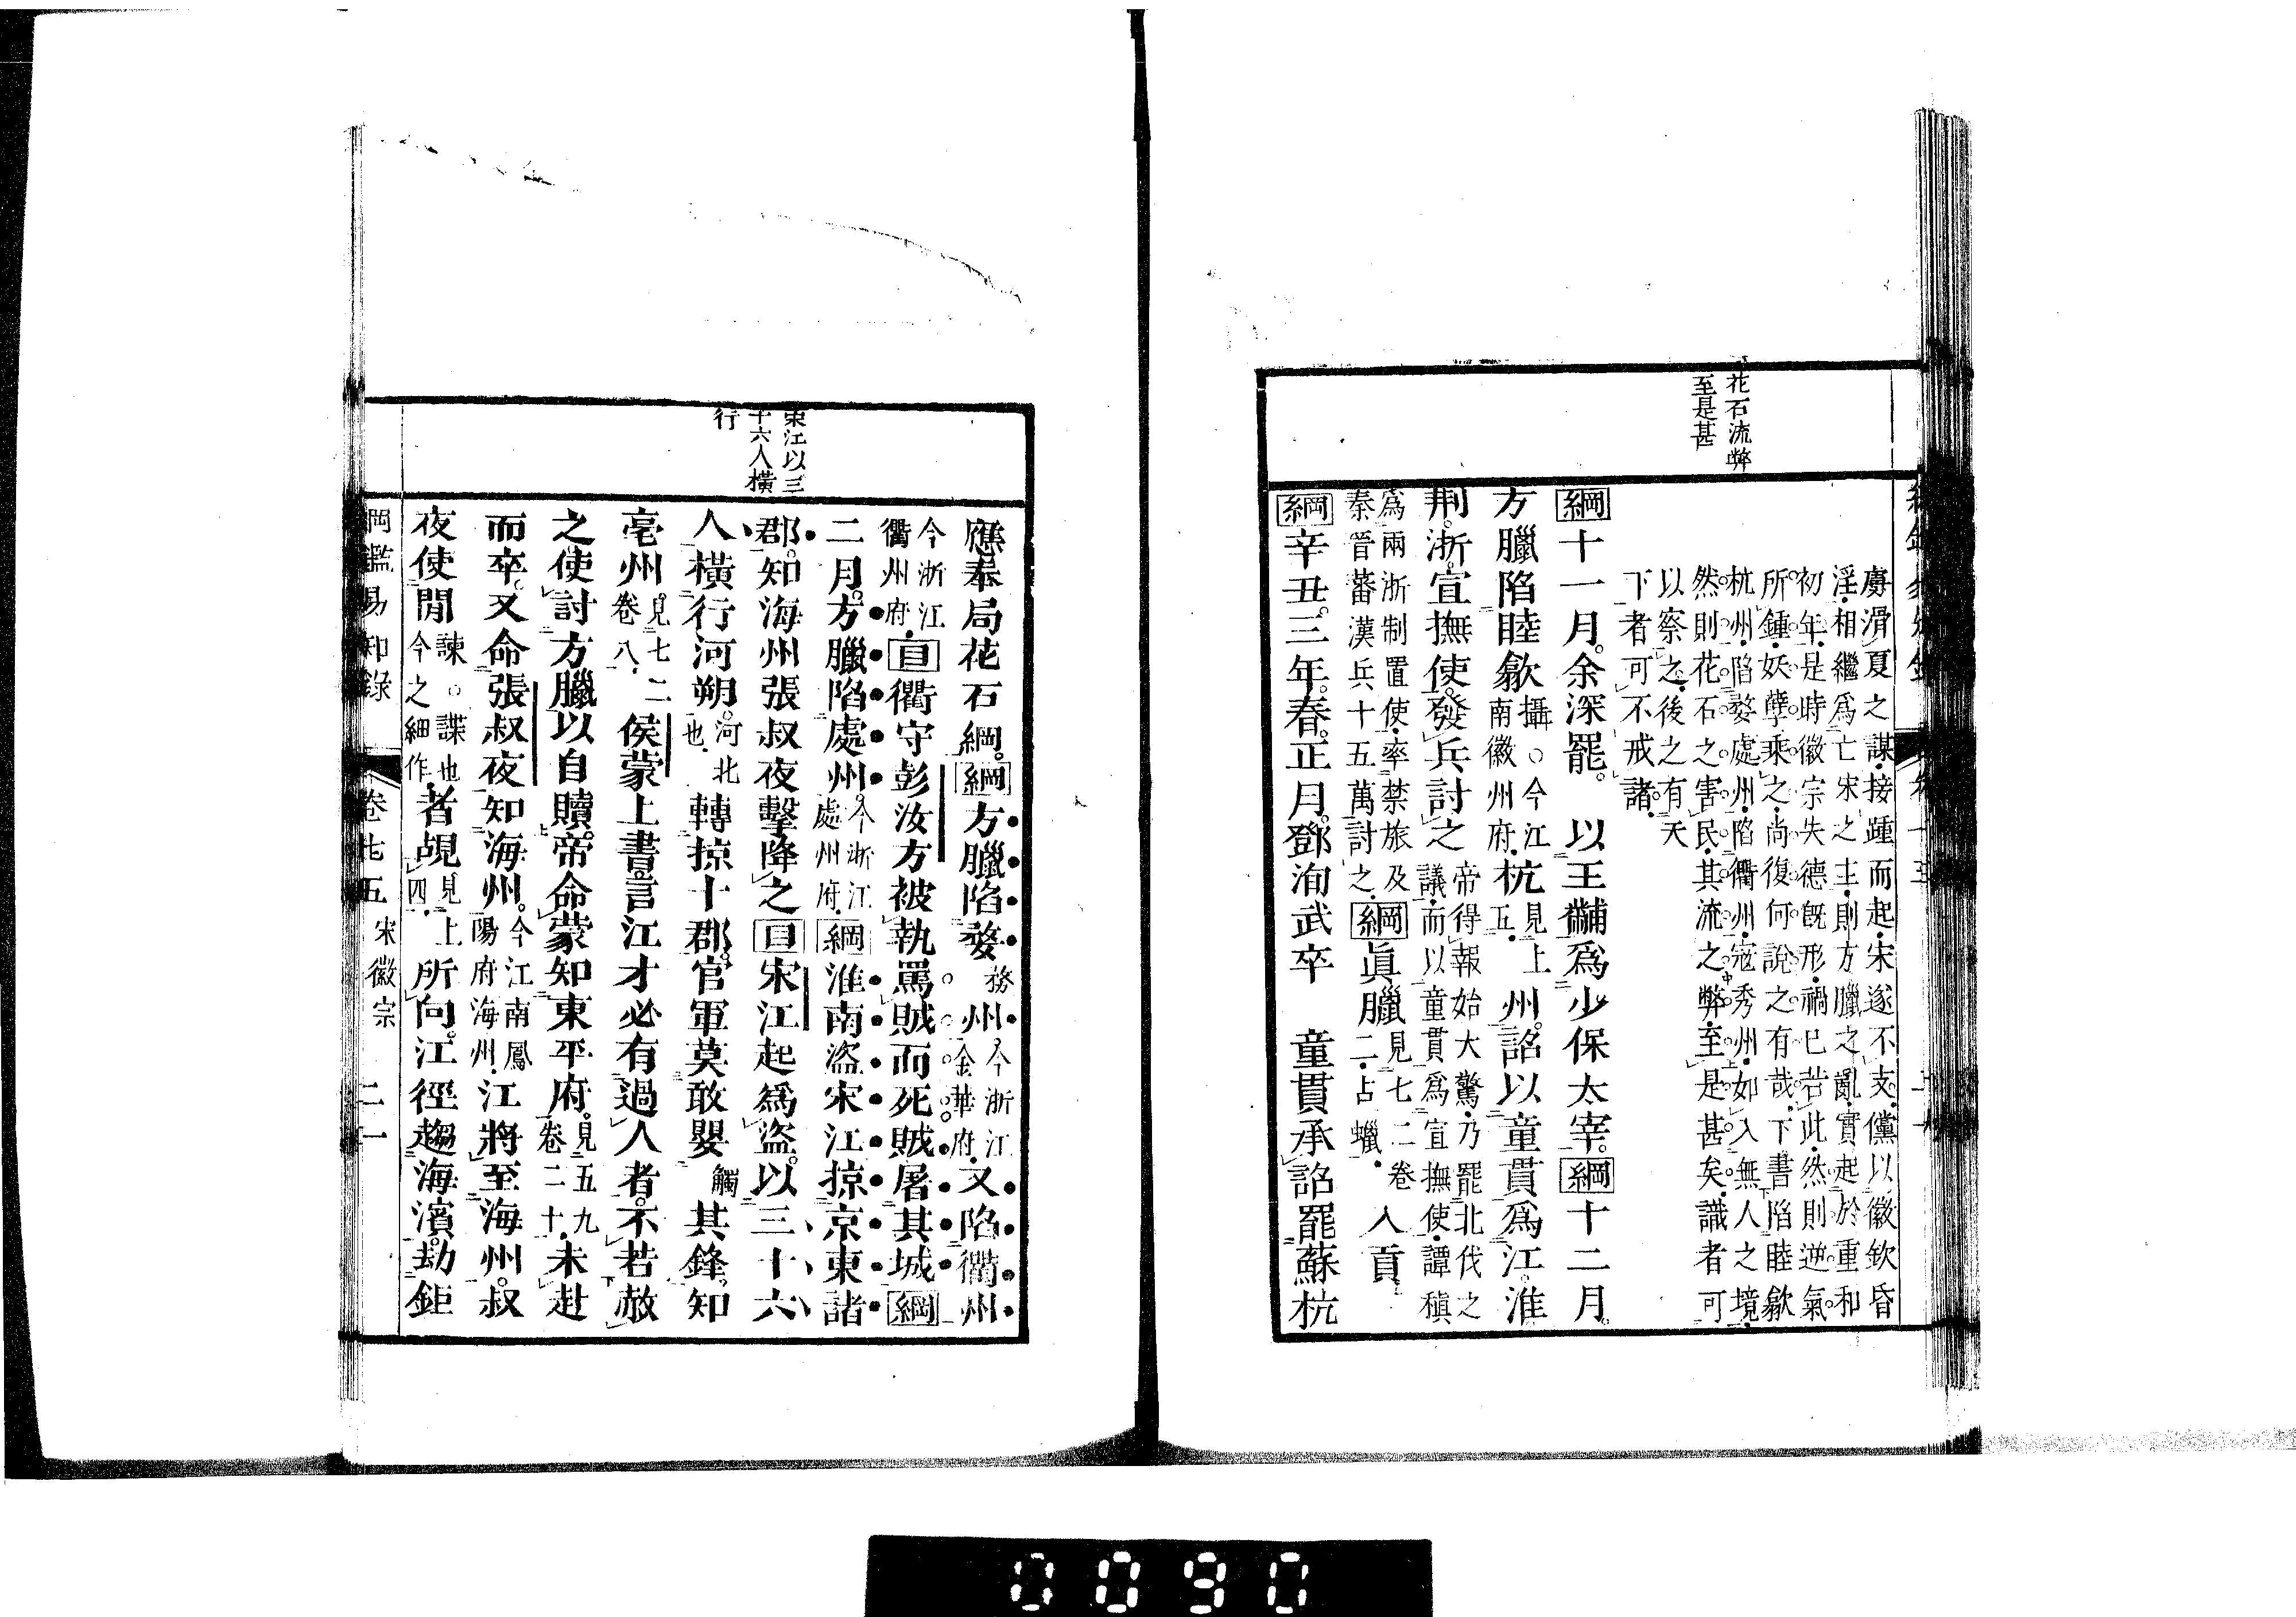 花石流弊
至是甚
虜滑夏之謀接踵而起宋遂不支儻以徽欽昏
淫相繼爲亡宋之主則方臘之亂實起於重和
初年是時徽宗失德既形禍已若此然則逆氣
所鍾妖孽乘之尚復何說之有哉下書陷睦歙
杭州陷婺處州陷衢州寇秀州如入無人之境
然則花石之害民其流之弊至是甚矣識者可
以察之後之有天
下者可不戒諸
綱十一月。余深罷。　以王黼爲少保太宰。綱十二月。
方臘陷睦歙攝○今江南徽州府杭見上五州。詔以童貫爲江。淮
荆。浙。宣撫使。發兵討之帝得報始大驚乃罷北伐之議而以童貫爲宣撫使譚稹
爲兩浙制置使率禁旅及秦晉蕃漢兵十五萬討之綱眞臘見七二卷二占蠟入貢
綱辛丑。三年。春。正月。鄧洵武卒　童貫承詔罷蘇杭
宋江以三
十六人橫
行
應奉局花石綱。綱方臘陷婺務州今浙江金華府又陷衢州
今浙江衢州府目衢守彭汝方被執罵賊而死。賊屠其城綱
二月。方臘陷處州。今浙江處州府綱淮南盜宋江掠京東諸
郡。知海州張叔夜擊降之目宋江起爲盜。以三十六
人橫行河朔。河北也轉掠十郡。官軍莫敢嬰觸其鋒。知
亳州。見七二卷八侯蒙上書言江才必有過人者。不若赦
之使討方臘以自贖。帝命蒙知東平府。見五九卷二十未赴
而卒。又命張叔夜知海州。今江南鳳陽府海州江將至海州。叔
夜使閒諫○諜也今之細作者覘見上四所向。江徑趨海濱。劫鉅
綱鑑易知錄　卷七五　宋徽宗　二一
0090